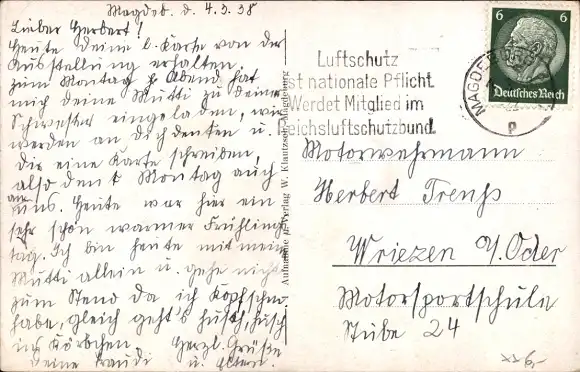 Magdeb. d. 4.3.38
Lieber Herbert!
Heute deine l. Karte von der
Ausstellung erhalten,
zum Montag Abend hat
mich deine Mutti zu deiner
Schwester eingeladen, wir
werden an dich denken u.
dir eine Karte schreiben,
also denk Montag auch
an uns. Heute war hier ein
sehr schön warmer Frühlings
tag. Ich bin heute mit mein
Mutti allein u. gehe nicht
zum Stend da ich Kopfschm
habe, gleich geht's husch, husch
ins Körbchen. Herzl. Grüße
deine Traudi u. Eltern.
Aufnahme u. Verlag W. Klautzsch, Magdeburg
Luftschutz
ist nationale Pflicht
Werdet Mitglied im
Reichsluftschutzbund
MAGDEBURG
p
6 6
Deutsches Reich
Motorwehrmann
Herbert Trenps
Wriezen /Oder
Motorsportschule
Stube 24